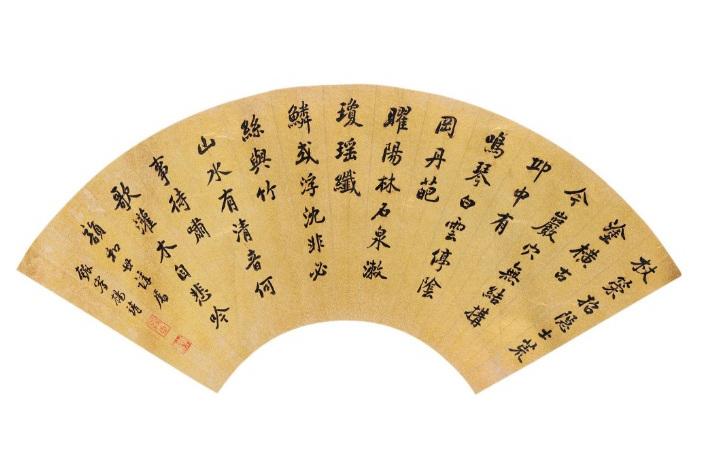 杖策招隱士荒
塗橫古
今巖穴無結構
邱中有
鳴琴白雲停陰
岡丹葩
曜陽林石泉漱
瓊瑤纖
鱗或浮沈非必
絲與竹
山水有清音何
事待嘯
歌灌木自悲吟
韻和世